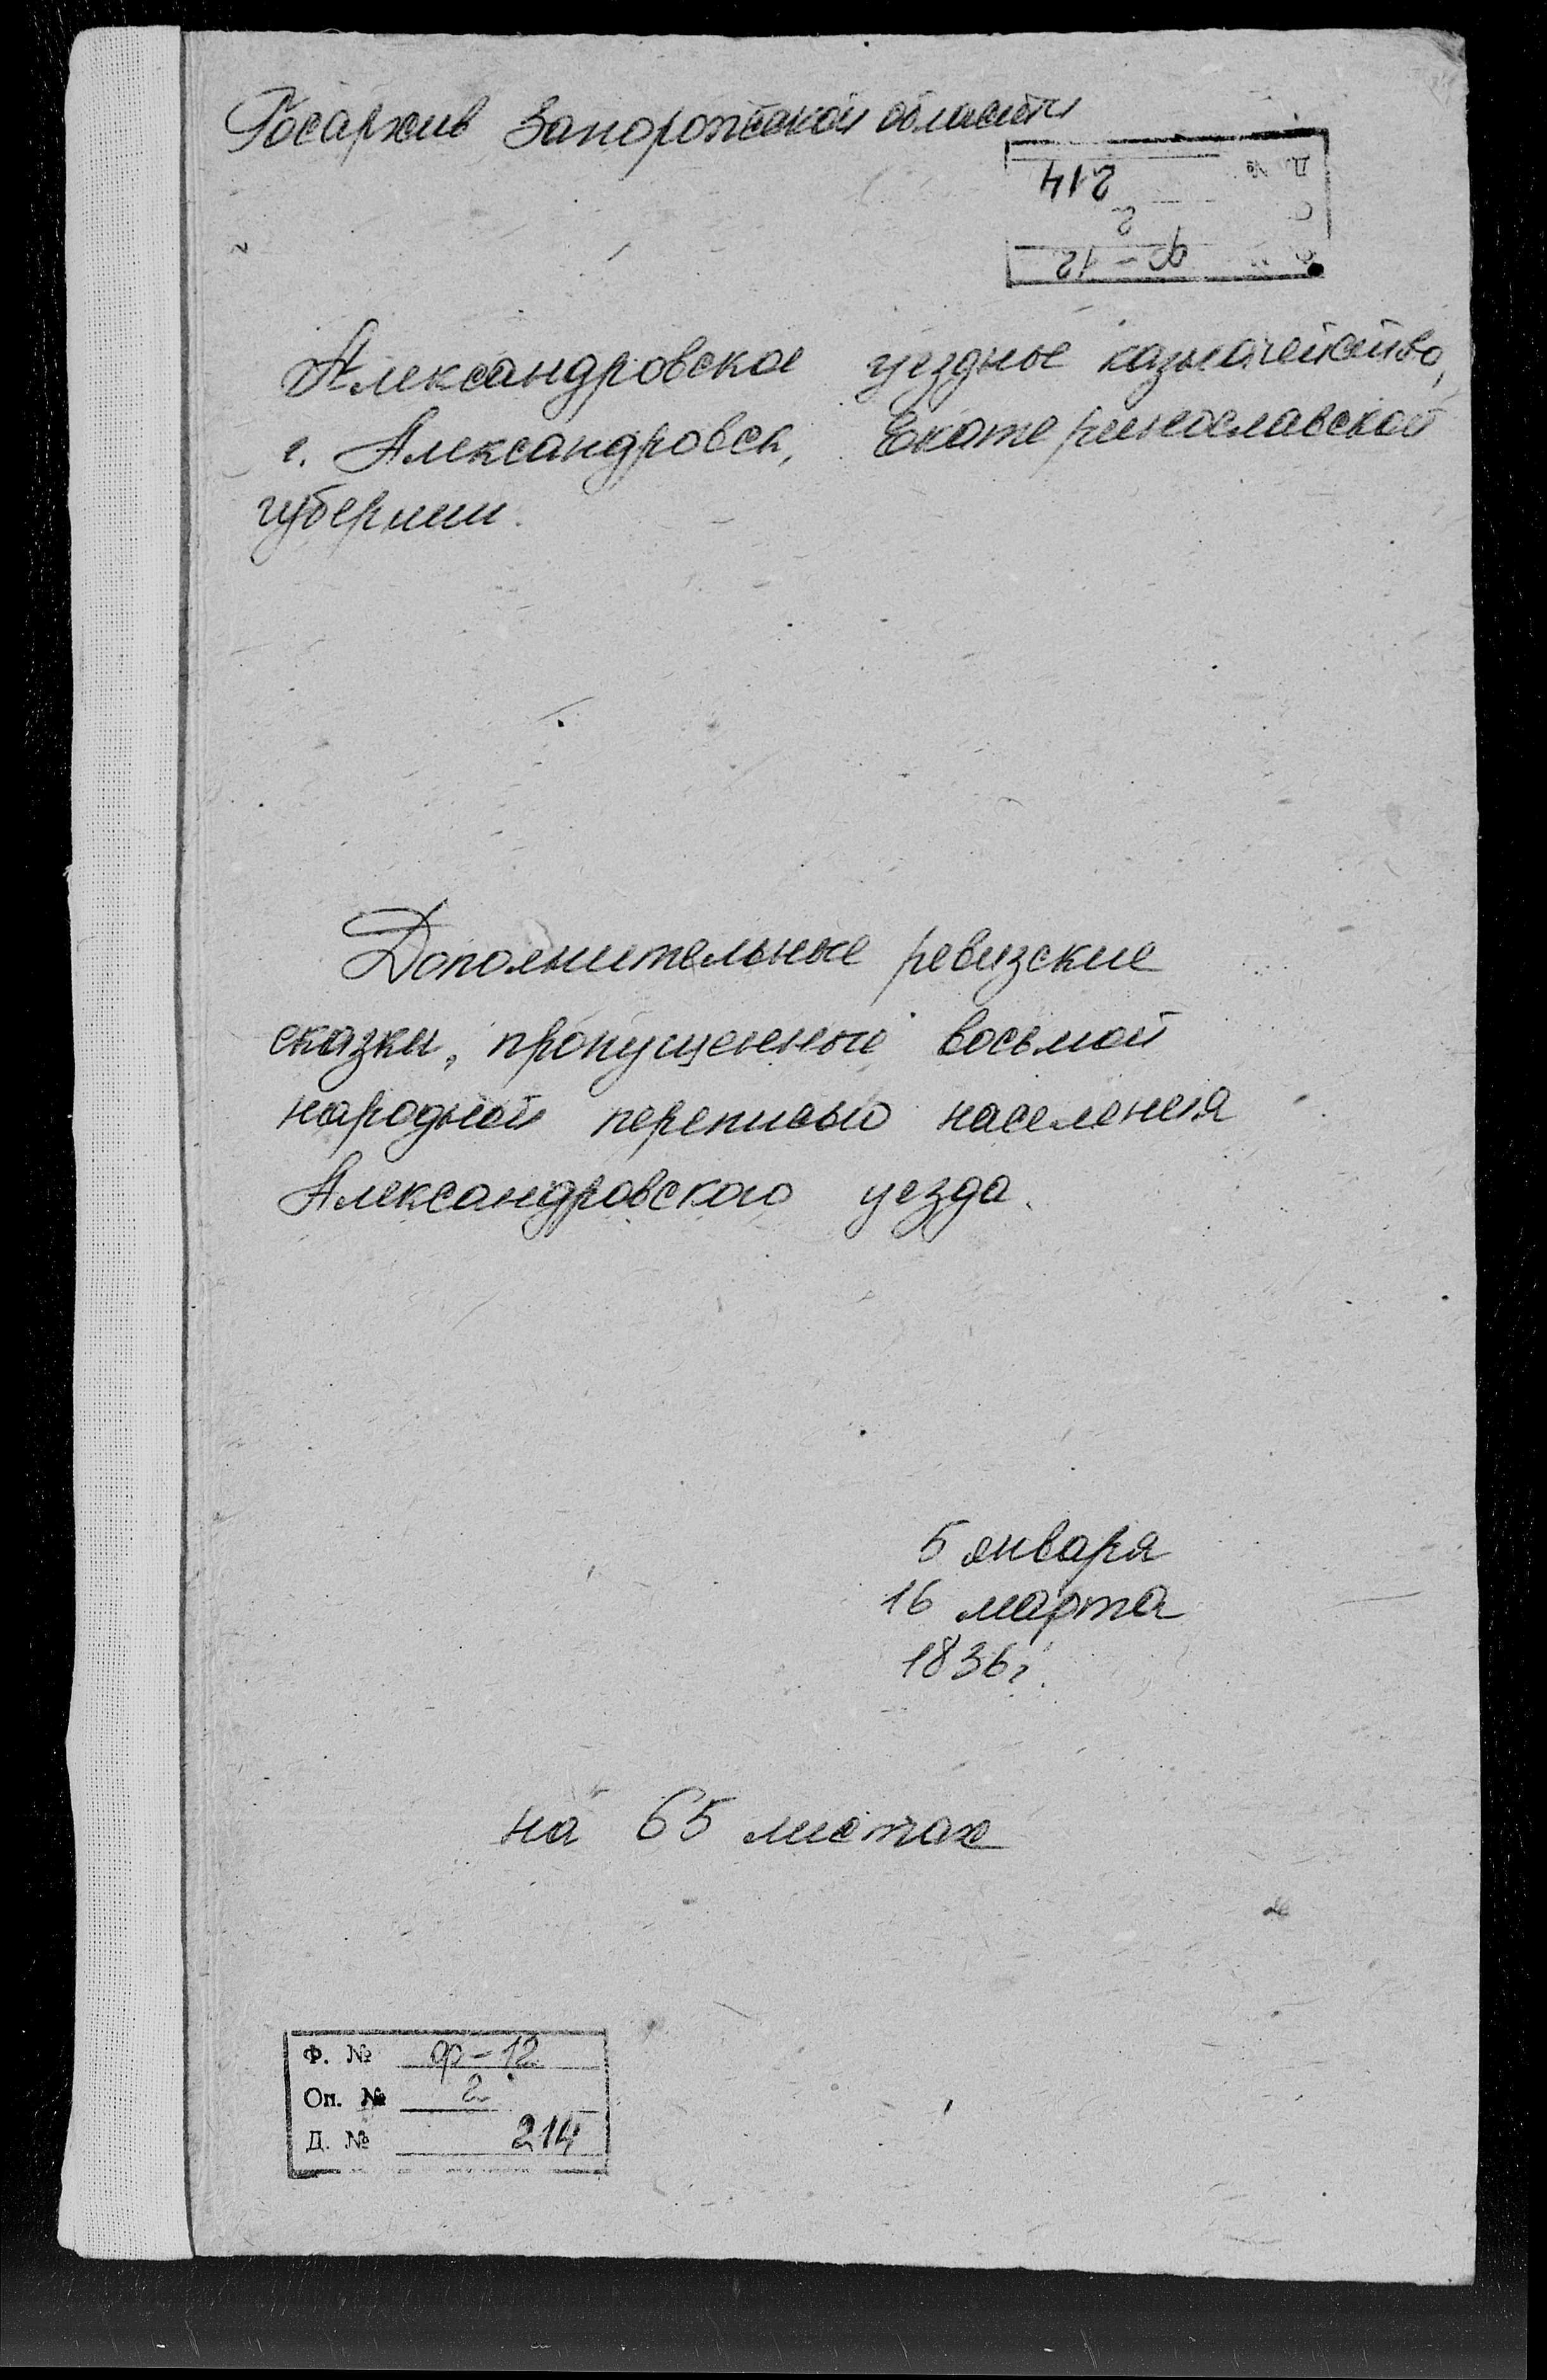 Госархив Запорожской области
Д. № 214
О 2
Ф № ф-12
Александровское уездное казначейство,
г. Александровск, Екатеринославской
губернии.
Дополнительные ревизские
сказки, пропущенные восьмой
народной переписью населения
Александровского уезда.
5 января
16 марта
1836 г.
на 65 листах
Ф. № ф-12
Оп. № 2
Д. № 214